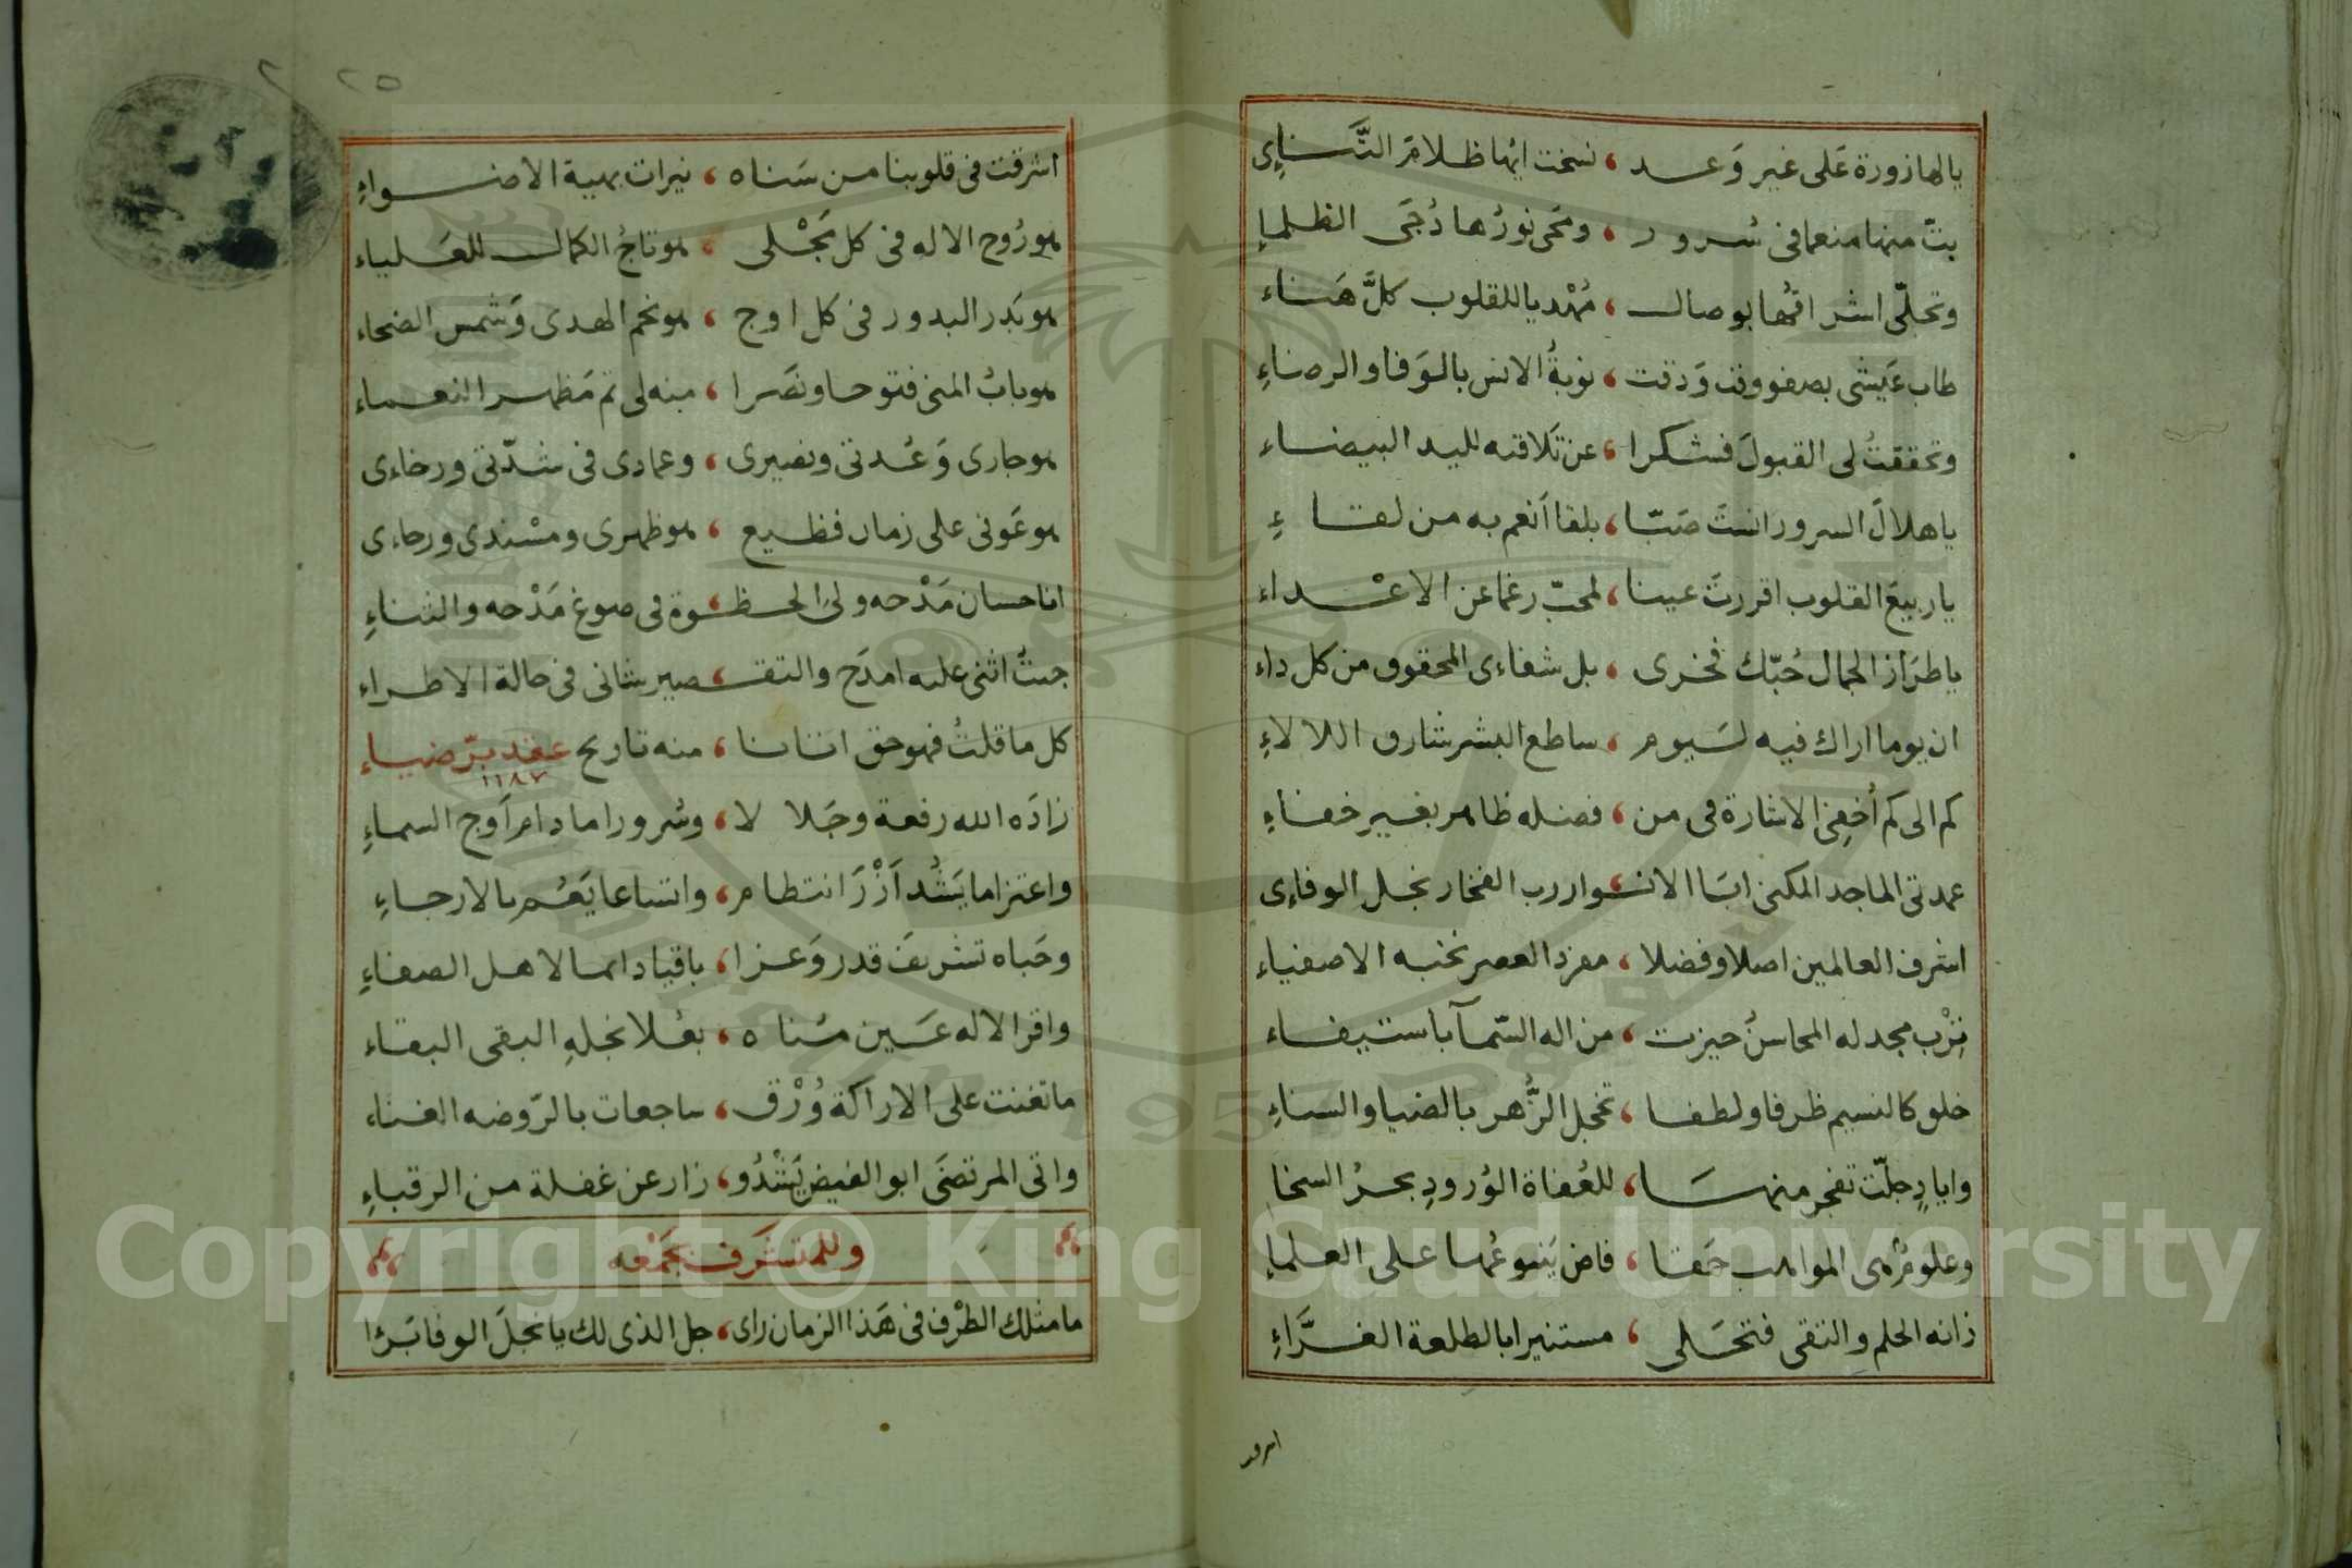 يالها زورة عَلى غير وَعد ، نسخت ايها ظلام التَّناءِى
بتّ منها منعما فى سُرور ، ومَحى نورُها دُجَى الظلماءِ
وتجلّى اشراقُها بوصال ، مُهْديا للقلوب كلَّ هَناء
طاب عَيشى بصفو وقت وَدقت ، نوبةُ الانس بالوَفا والرضاءِ
وتحققتُ لى القبولَ فشكرا ، عن تَلاقته لليد البيضاء
يا هلالَ السرور انستَ صَبّا ، بلقا اَنعم به من لقاءِ
يا ربيعَ القلوب اقررتَ عينا ، لمحبّ رغما عن الاعْداء
يا طرَازَ الجمال حُبّك فخرى ، بل شفاءى المحقوق من كل داء
ان يوما اراك فيه لسَيوم ، ساطع البشر شارق اللالاءِ
كم الى كم اُخفِى الاشارة فى من ، فضله ظاهر بغير خفاءِ
عمدتى الماجد المكنى ابَا الانــوار رب الفخار نجل الوفاءِى
اشرف العالمين اصلا وفضلا ، مفرد العصر نخبه الاصفياء
تِرْب مجد له المحاسنُ حيزت ، من اله السّمآ باستيفاء
خلق كالنسيم ظرفا ولطفا ، تخجل الزُّهر بالضيا والسناءِ
وايادٍ جلّت تفجر منهَا ، للعُفاة الوُرودِ بحرُ السخا
وعلومٌ هى المواهب حَقا ، فاض يَنبوعُها على العلماءِ
زانه الحلم والتقى فتحَلى ، مستنيرا بالطلعة الغرَّاءِ
اشرقت
اشرقت فى قلوبنا من سَناه ، نيرات بهية الاضواءِ
هو رُوح الاله فى كل مَجْلى ، هو تاجُ الكمال للعَلياء
هو بَدر البدور فى كل اوج ، هو نجم الهدى وَشمس الضحاء
هو بابُ المنى فتوحا ونصَرا ، منه لى تم مَظهر النعماء
هو جارى وَعُدتى ونصيرى ، وعمادى فى شدّتى ورخاءى
هو عَونى على زمان فظيع ، هو ظهرى ومسْندى ورجاءى
انا حسان مَدْحه ولىَ الحظــوة فى صوغ مَدْحه والثناءِ
جئتُ اثنى عليه امدَح والتقــصير شانى فى حالة الاطراء
كل ما قلتُ فهو حق اتانا ، منه تاريح عقد برّ ضياءِ
١١٨٧
زادَه الله رفعة وجَلالا ، وسُرورا ما دام اَوج السماءِ
واعتزاما يَشُد اَزْرَ انتظام ، واتساعا يَعُم بالارجاءِ
وحَباه تشريفَ قدر وَعزا ، باقيا دائما لاهل الصفاءِ
واقر الاله عَين سُناه ، بعُلا نجلهِ البقى البقاء
ما تغنت على الاراكة وُرْق ، ساجعات بالرّوضه الغناء
واتى المرتضَى ابو الفيض يَشْدُو ، زار عن غفلة من الرقباءِ
وللمتشرف بجَمْعه
ما مثلك الطرْف فى هَذا الزمان راى ، جل الذى لك يا نجلَ الوفا بَرَا